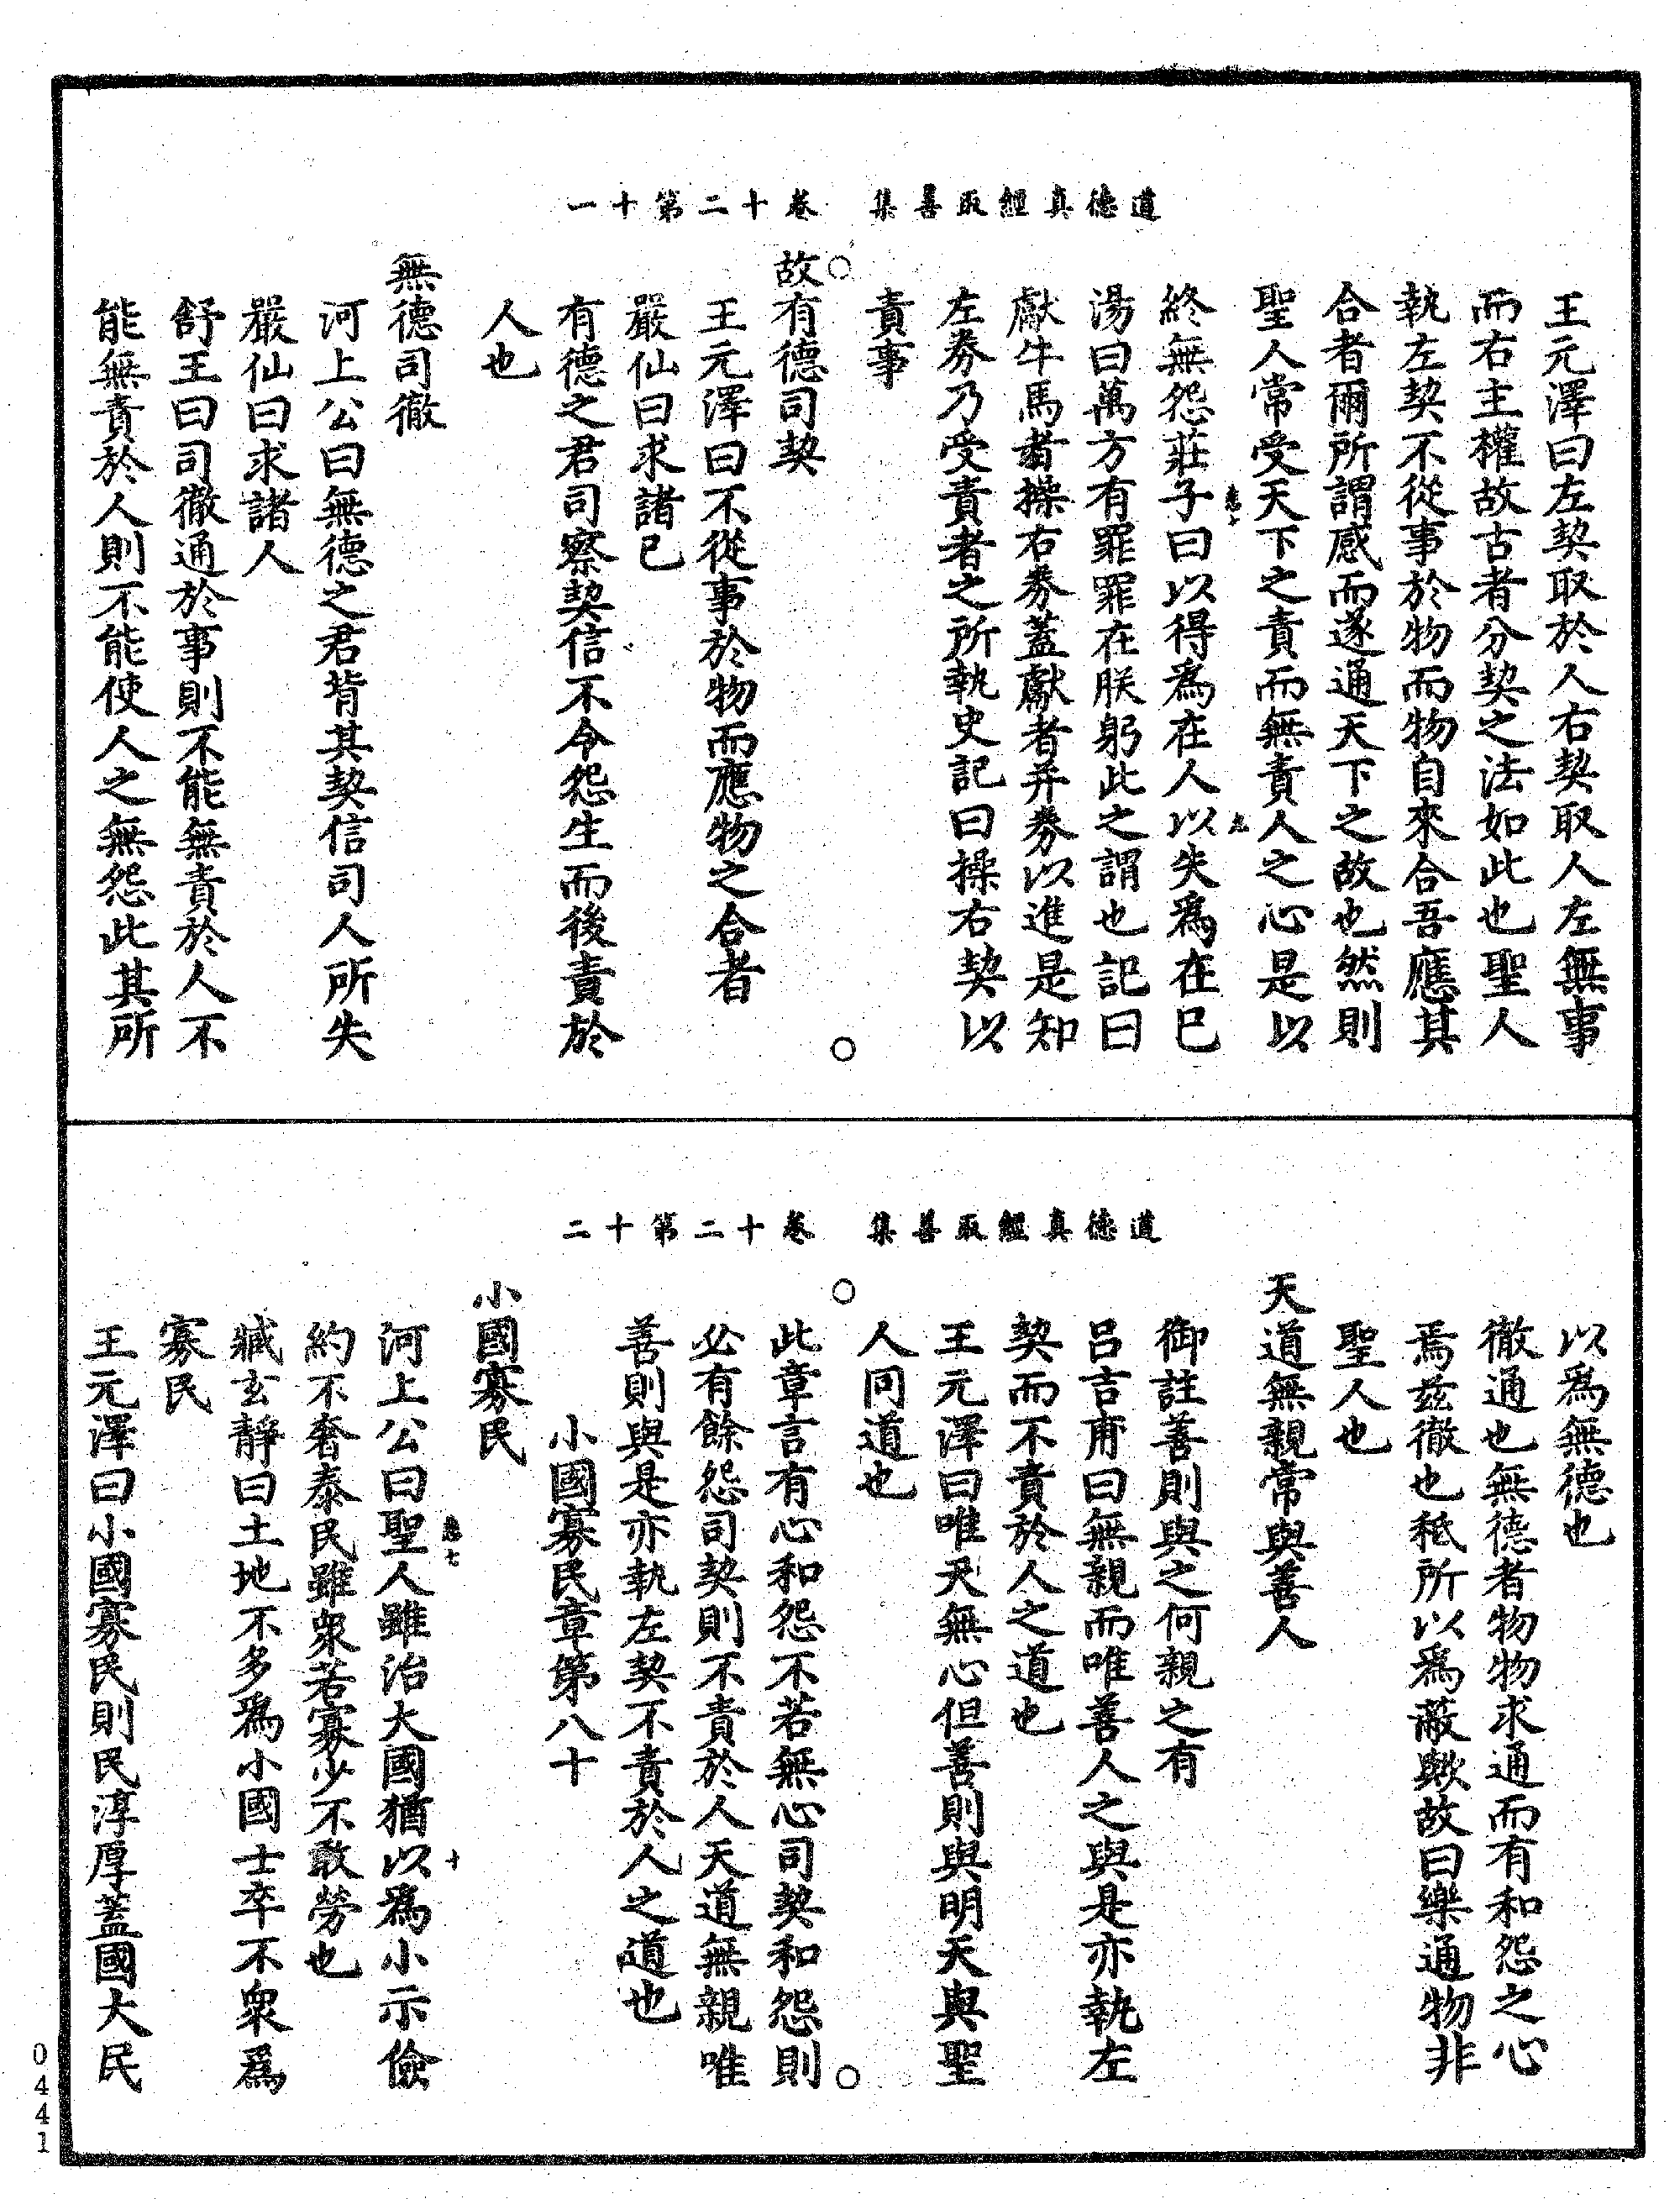 道德真經取善集　卷十二第十一
王元澤曰左契取於人右契取人左無事
而右主權故古者分契之法如此也聖人
執左契不從事於物而物自來合吾應其
合者爾所謂感而遂通天下之故也然則
聖人常受天下之責而無責人之心是以
終無怨莊子曰以得爲在人以失爲在已
湯曰萬方有罪罪在朕躬此之謂也記曰
獻牛馬者操右券蓋獻者并券以進是知
左券乃受責者之所執史記曰操右契以
責事
故有德司契
王元澤曰不從事於物而應物之合者
嚴仙曰求諸已
有德之君司察契信不令怨生而後責於
人也
無德司徹
河上公曰無德之君背其契信司人所失
嚴仙曰求諸人
舒王曰司徹通於事則不能無責於人不
能無責於人則不能使人之無怨此其所
道德真經取善集　卷十二第十二
以爲無德也
徹通也無德者物物求通而有和怨之心
焉茲徹也秖所以爲蔽歟故曰樂通物非
聖人也
天道無親常與善人
御註善則與之何親之有
呂吉甫曰無親而唯善人之與是亦執左
契而不責於人之道也
王元澤曰唯天無心但善則與明天與聖
人同道也
此章言有心和怨不若無心司契和怨則
必有餘怨司契則不責於人天道無親唯
善則與是亦執左契不責於人之道也
小國寡民章第八十
小國寡民
河上公曰聖人雖治大國猶以爲小示儉
約不奢泰民雖衆若寡少不敢勞也
臧玄靜曰土地不多爲小國士卒不衆爲
寡民
王元澤曰小國寡民則民淳厚蓋國大民
0441